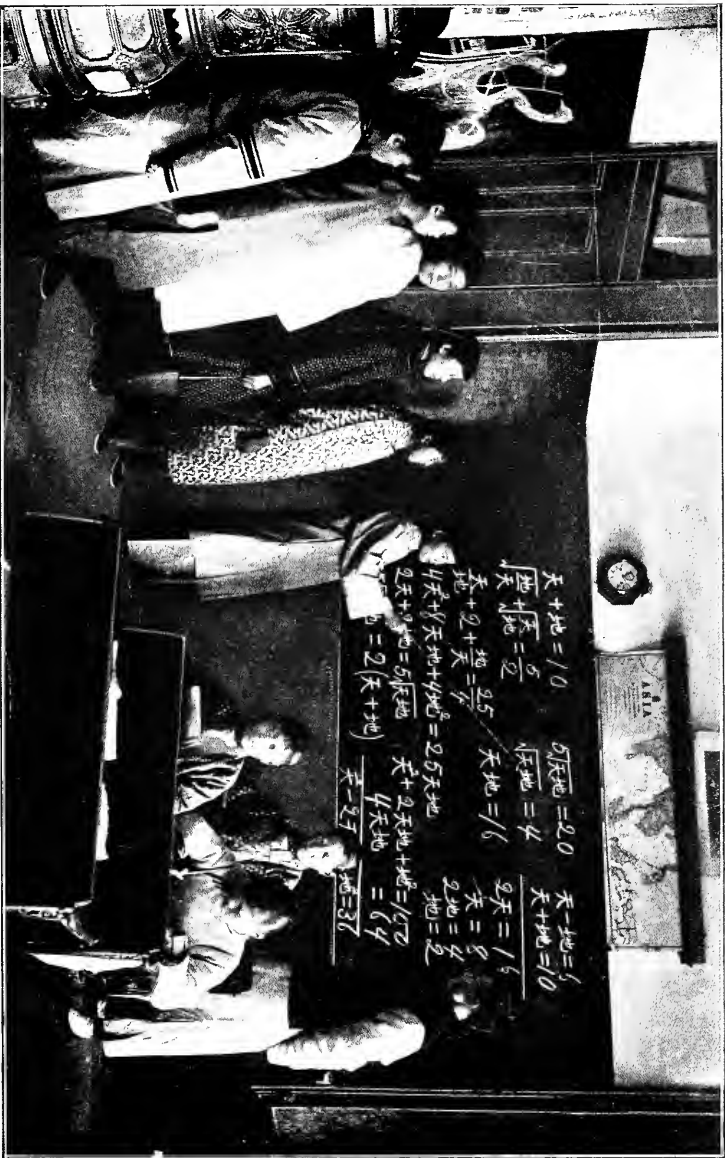 ASIA
天+地=10
√地/天+√天/地=5/2
天/地+2+地/天=25/4
4天²+8天地+4地²=25天地
2天+2地=5√天地
=2(天+地)
5√天地=20
√天地=4
天地=16
天²+2天地+地²=100
4天地 =64
地²=36
天-地=6
天+地=10
2天=16
天=8
2地=4
地=2